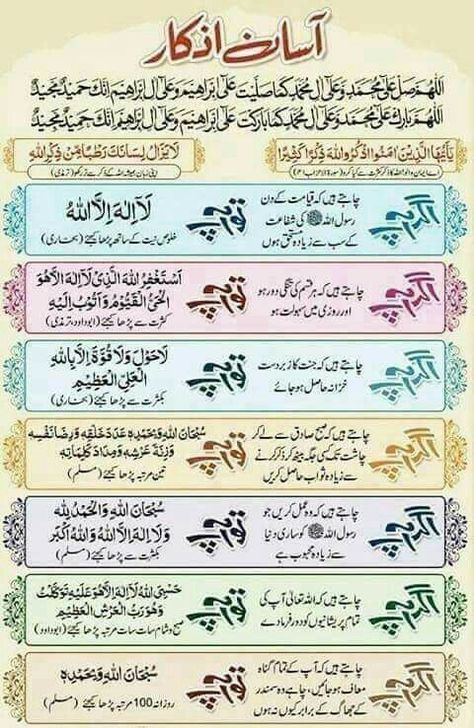 آسان اذکار
اَللّٰهُمَّ صَلِّ عَلٰى مُحَمَّدٍ وَّعَلٰى اٰلِ مُحَمَّدٍ كَمَا صَلَّيْتَ عَلٰى اِبْرَاهِيْمَ وَعَلٰى اٰلِ اِبْرَاهِيْمَ اِنَّكَ حَمِيْدٌ مَّجِيْدٌ
اَللّٰهُمَّ بَارِكْ عَلٰى مُحَمَّدٍ وَّعَلٰى اٰلِ مُحَمَّدٍ كَمَا بَارَكْتَ عَلٰى اِبْرَاهِيْمَ وَعَلٰى اٰلِ اِبْرَاهِيْمَ اِنَّكَ حَمِيْدٌ مَّجِيْدٌ
يٰٓاَيُّهَا الَّذِيْنَ اٰمَنُوا اذْكُرُوا اللهَ ذِكْرًا كَثِيْرًا
لَا يَزَالُ لِسَانُكَ رَطْبًا مِّنْ ذِكْرِ اللهِ
اگر آپ
چاہتے ہیں کہ قیامت کے دن
رسول اللہ ﷺ کی شفاعت
کے سب سے زیادہ مستحق ہوں
تو آپ
لَآ اِلٰهَ اِلَّا اللهُ
خلوص نیت کے ساتھ پڑھا کیجئے (بخاری)
اگر آپ
چاہتے ہیں کہ ہر قسم کی تنگی دور ہو
اور روزی میں سہولت ہو
تو آپ
اَسْتَغْفِرُ اللهَ الَّذِيْ لَآ اِلٰهَ اِلَّا هُوَ
الْحَيُّ الْقَيُّوْمُ وَ اَتُوْبُ اِلَيْهِ
کثرت سے پڑھا کیجئے (ابوداود، ترمذی)
اگر آپ
چاہتے ہیں کہ جنت کا زبردست
خزانہ حاصل ہو جائے
تو آپ
لَاحَوْلَ وَلَا قُوَّةَ اِلَّا بِاللهِ
الْعَلِيِّ الْعَظِيْمِ
بکثرت سے پڑھا کیجئے (بخاری)
اگر آپ
چاہتے ہیں کہ صبح صادق سے لے کر
چاشت تک کی جگہ بیٹھ کر ذکر کرنے
سے زیادہ ثواب حاصل کریں
تو آپ
سُبْحَانَ اللهِ وَبِحَمْدِهٖ عَدَدَ خَلْقِهٖ وَرِضَا نَفْسِهٖ
وَزِنَةَ عَرْشِهٖ وَمِدَادَ كَلِمَاتِهٖ
تین مرتبہ پڑھا کیجئے (مسلم)
اگر آپ
چاہتے ہیں کہ وہ عمل کریں جو
رسول اللہ ﷺ کو ساری دنیا
سے زیادہ محبوب ہے
تو آپ
سُبْحَانَ اللهِ وَالْحَمْدُ لِلّٰهِ
وَلَآ اِلٰهَ اِلَّا اللهُ وَاللهُ اَكْبَرُ
بکثرت سے پڑھا کیجئے (مسلم)
اگر آپ
چاہتے ہیں کہ اللہ تعالیٰ آپ کی
تمام پریشانیوں کو دور فرمادے
تو آپ
حَسْبِيَ اللهُ لَآ اِلٰهَ اِلَّا هُوَ عَلَيْهِ تَوَكَّلْتُ
وَهُوَ رَبُّ الْعَرْشِ الْعَظِيْمِ
صبح و شام سات سات مرتبہ پڑھا کیجئے (ابوداود)
اگر آپ
چاہتے ہیں کہ آپ کے تمام گناہ
معاف ہو جائیں، چاہے وہ سمندر
کے جھاگ کے برابر کیوں نہ ہوں
تو آپ
سُبْحَانَ اللهِ وَبِحَمْدِهٖ
روزانہ 100 مرتبہ پڑھا کیجئے (مسلم)